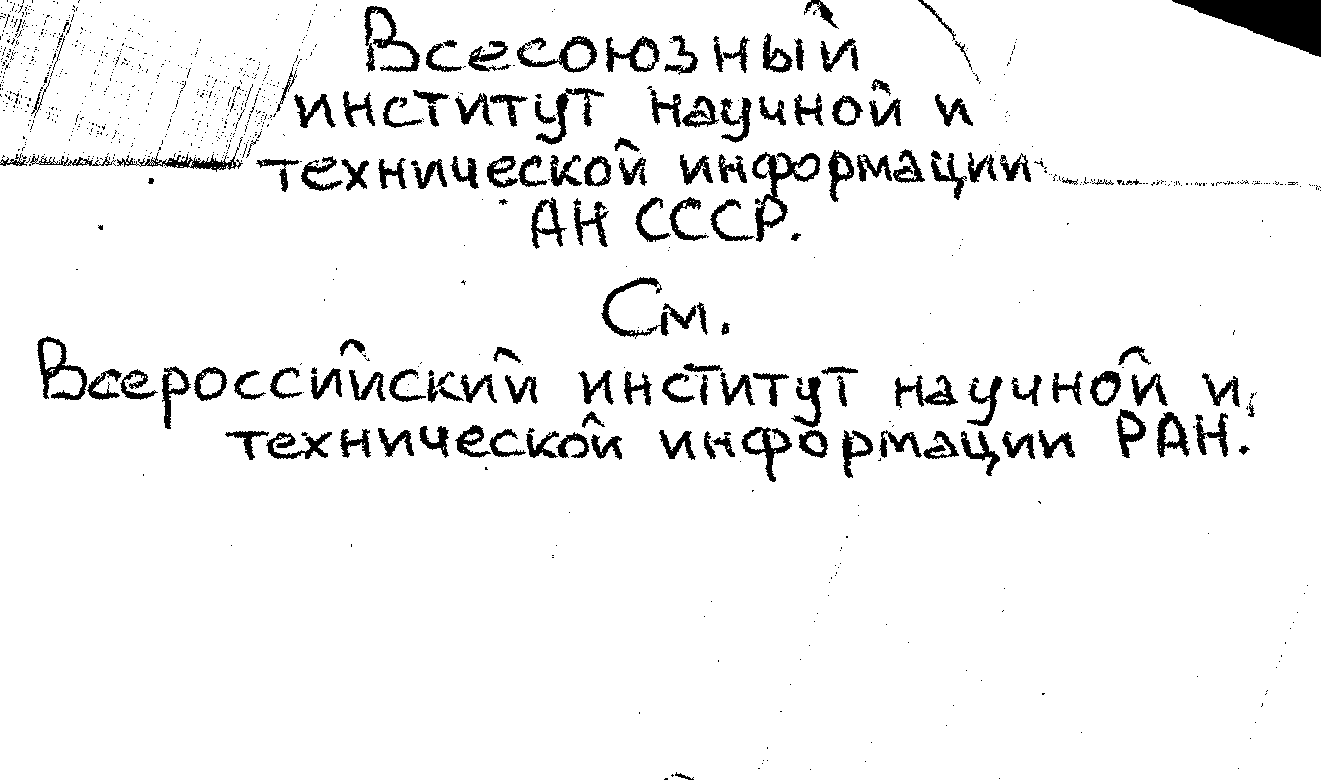 Всесоюзный
институт научной и
технической информации
АН СССР.
См.
Всероссийский институт научной и
технической информации РАН.